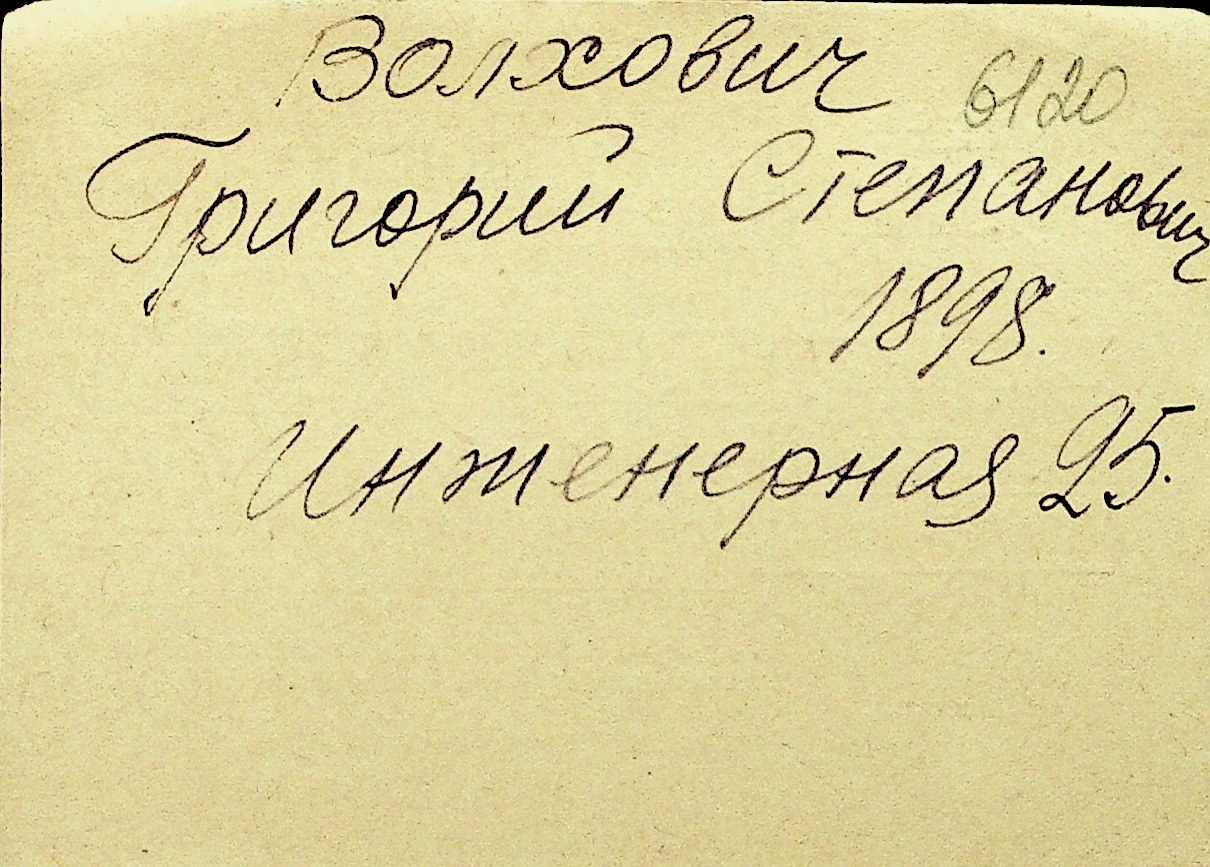 Волхович 6120
Григорий Степанович
1898.
Инженерная 25.